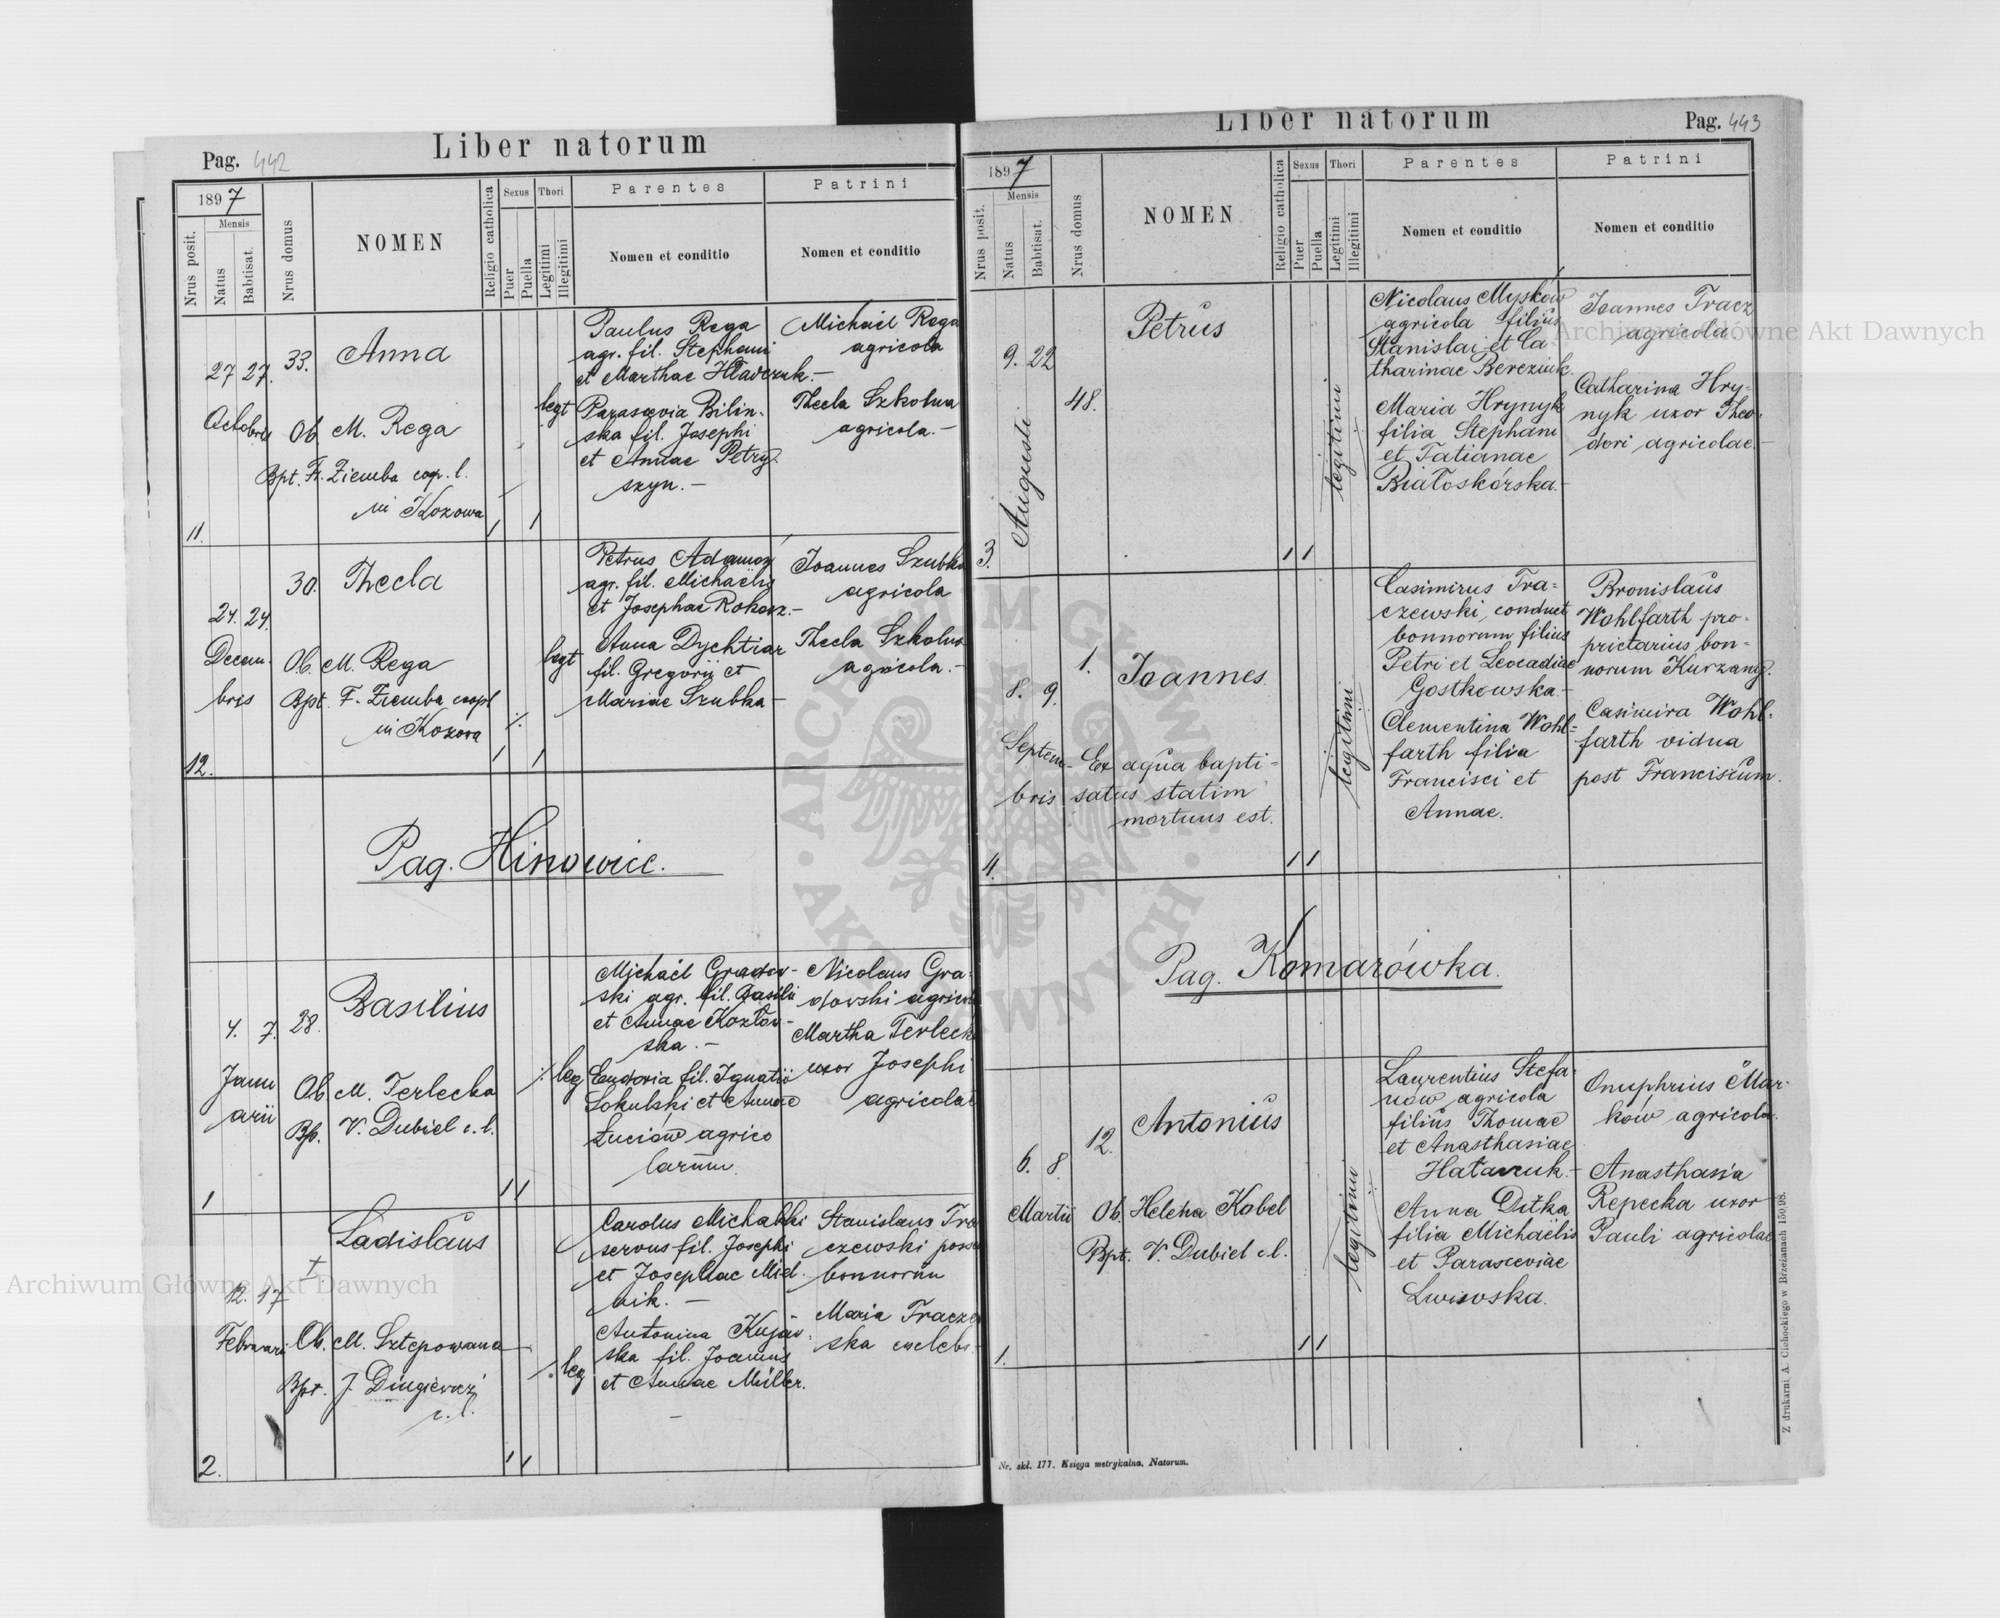 Liber natorum
Pag. 442
1897
Mensis
Nrus posit.
Natus
Babtisat.
Nrus domus
NOMEN
Religio catholica
Sexus
Puer
Puella
Thori
Legitimi
Illegitimi
Parentes
Nomen et conditio
Patrini
Nomen et conditio
11.
27 27.
Octobris
33.
Anna
Ob. M. Rega
Bpt. Fr. Ziemba cop. l.
in Kozowa
legt
Paulus Rega
agr. fil. Stephani
et Marthae Hławczuk.-
Parascevia Bilin-
ska fil. Josephi
et Annae Petry-
szyn.-
Michaël Rega
agricola
Thecla Szkolna
agricola.-
12.
24. 24.
Decem-
bris
30.
Thecla
Ob. M. Rega
Bpt. F. Ziemba coopl
in Kozowa
legt
Petrus Adamow
agr. fil. Michaëlis
et Josephae Rokosz.-
Anna Dychtiar
fil. Gregorii et
Mariae Szubka-
Joannes Szubka
agricola
Thecla Szkolna
agricola.-
Pag. Hinowice.
1
4. 7.
Janu
arii
28.
Basilius
Ob M. Terlecka
Bp. V. Dubiel c. l.
leg
Michaël Gradow-
ski agr. fil. Basilii
et Annae Kozłow-
ska.-
Eudoxia fil. Ignatii
Sokulski et Annae
Łuciów agrico
larum.
Nicolaus Gra-
dowski
Martha
uxor Josephi
agricolae
2.
12. 17
Februarii
Ladislaus
†
Ob. M. Sztepowana
Bpt. J.
c. l.
leg
Carolus Michalski
servus fil. Josephi
et Josephae Miel-
nik.-
Antonina Kujaw-
ska fil. Joannis
et Annae Müller.
-
Stanislaus Tra
czewski
bonnorum
Maria Tracze
ska
Liber natorum
Pag. 443
1897
Mensis
Nrus posit.
Natus
Babtisat.
Nrus domus
NOMEN
Religio catholica
Sexus
Puer
Puella
Thori
Legitimi
Illegitimi
Parentes
Nomen et conditio
Patrini
Nomen et conditio
3.
9. 22
Augusti
48.
Petrus
legitimi
Nicolaus Myśków
agricola filius
Stanislai et Ca-
tharinae Bereziuk.
Maria Hrynyk
filia Stephani
et Tatianae
Białoskórska.-
Joannes Tracz
agricola
Catharina Hry-
nyk uxor Theo-
dori agricolae.-
4.
8. 9.
Septem-
bris
1.
Joannes.
Ex aqua bapti-
satus statim
mortuus est.
legitimi
Casimirus Tra-
czewski, conduct.
bonnorum filius
Petri et Leocadiae
Gostkowska.-
Clementina Wohl-
farth filia
Francisci et
Annae.
Bronislaus
Wohlfarth pro-
prietarius bon-
norum Kurzany.
Casimira Wohl-
farth vidua
post Franciscum.
Pag. Komarówka.
1.
6. 8
Martii
12.
Antonius
Ob. Helena Kobel
Bpt. V. Dubiel c. l.
legitimi
Laurentius Stefa-
nów agricola
filius Thomae
et Anasthasiae
Hałaszuk.-
Anna Ditka
filia Michaëlis
et Parasceviae
Lwiwska.
Onuphrius Mar-
ków agricola.
Anasthasia
Repecka uxor
Pauli agricolae
Nr. skł. 177. Księga metrykalna. Natorum.
Z drukarni A. Ciehockiego w Brzeżanach 150/98.
Archiwum Główne Akt Dawnych
Archiwum Główne Akt Dawnych
ARCHIWUM GŁÓWNE AKT DAWNYCH